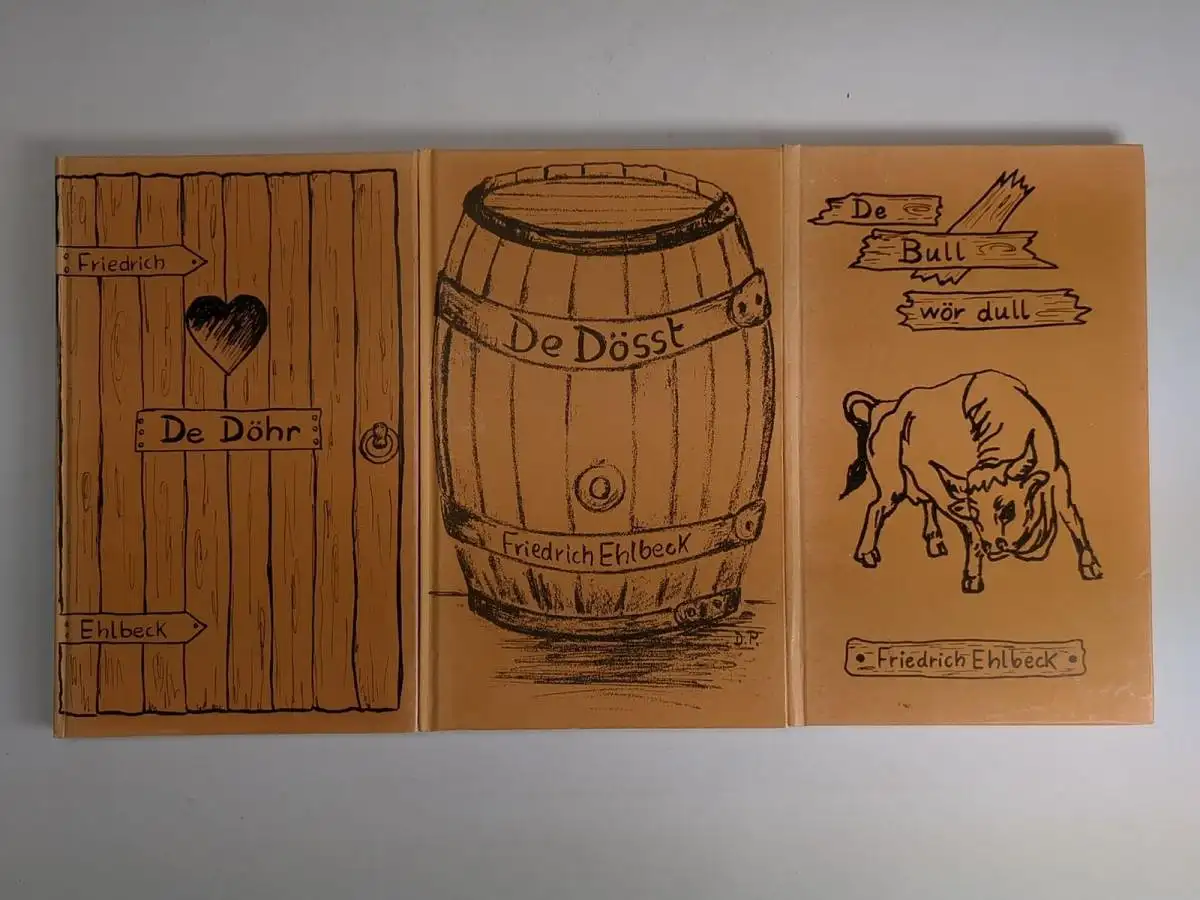 Friedrich
De Döhr
Ehlbeck
De Dösst
Friedrich Ehlbeck
D.P.
De
Bull
wör dull
Friedrich Ehlbeck